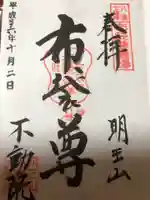 奉拝
明王山
布袋尊
不動院
平成二十六年十月二日